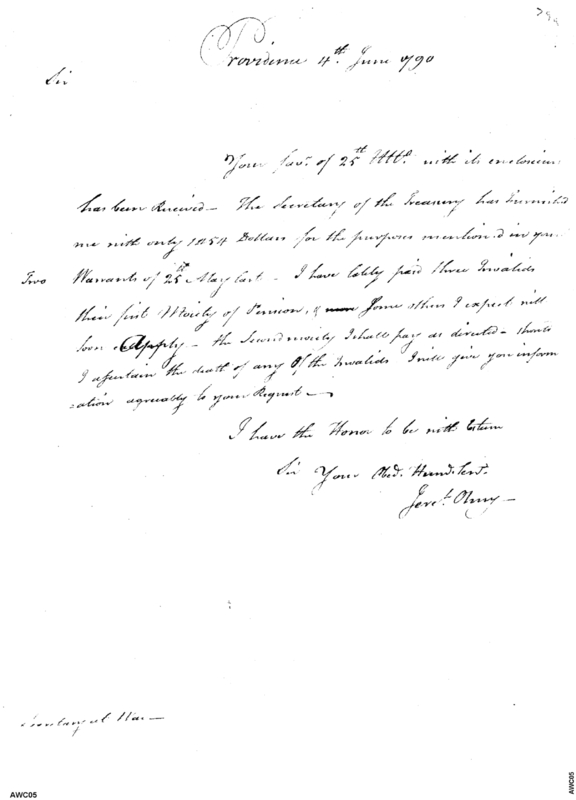 Providence 4th June 1790
Sir
Your favr. of 25th Ulto. with its enclosure
has been Received - The Secretary of the Treasury has furnished
me with only 1254 Dollars for the purposes mention'd in your
Two Warrants of 25th May last - I have lately paid three Invalids
their first Moiety of Pension, & Some others I expect will
soon Apply - the Second moiety I shall pay as directed - should
I ascertain the death of any Of the Invalids I will give you inform
=ation agreeably to your Request -
I have the Honor to be with Esteem
Sir Your Obed. Humb. Servt.
Jereh. Olney -
Secretary at War -
AWC05
AWC05